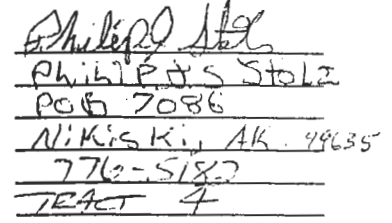 Philip J Stolz
Philip J S Stolz
POB 7086
Nikiski, AK 99635
776-5182
TRACT 4